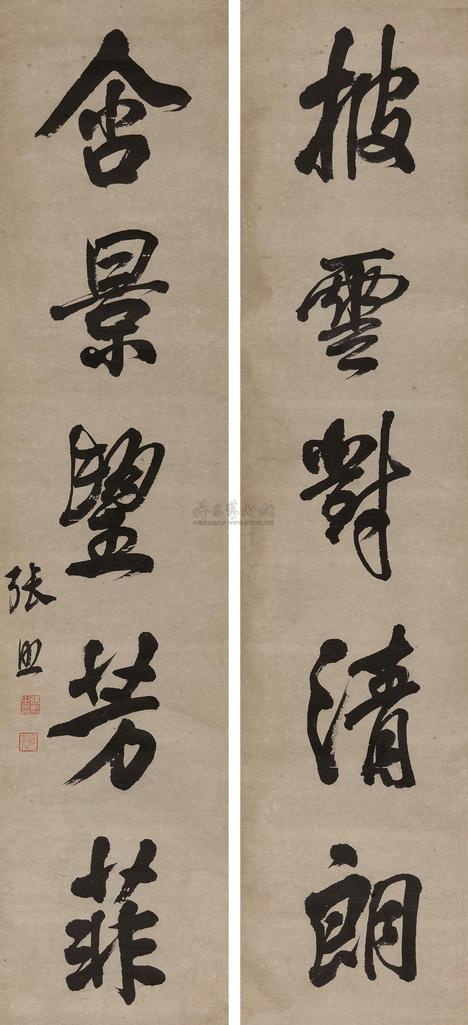 披雲對清朗
含景望芳菲
張照